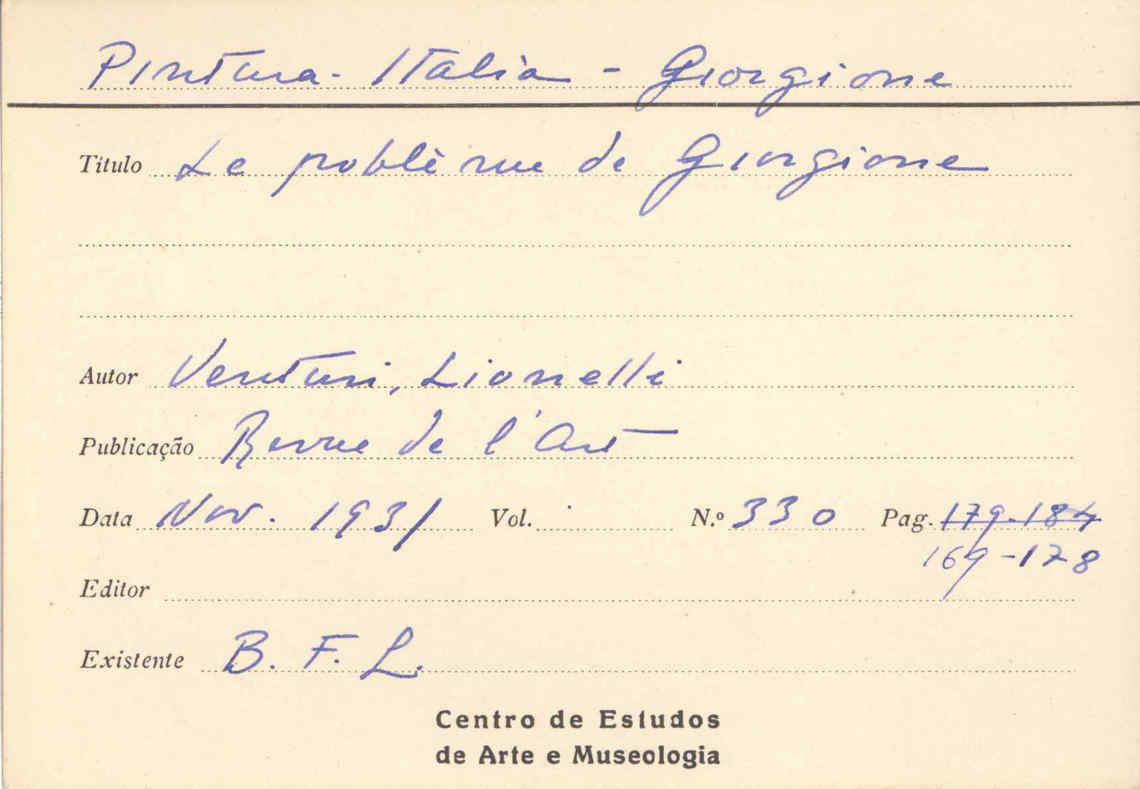 Pintura - Italia - Giorgione
Titulo Le problème de Giorgione
Autor Venturi, Lionelli
Publicação Revue de l'Art
Data Nov. 1931 Vol. N.º 330 Pag. 179-184
169-178
Editor
Existente B. F. L.
Centro de Estudos
de Arte e Museologia